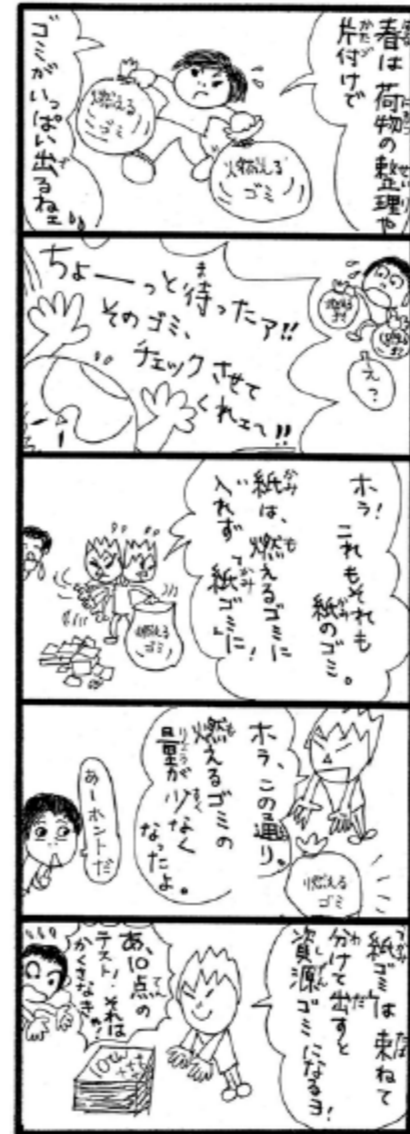 春は荷物の整理や
片付けで
ゴミが
いっぱい出るねェ
燃える
ゴミ
燃える
ゴミ
ちょーーっと待ったァ!!
そのゴミ、
チェックさせて
くれェ〜!!
燃える
ゴミ
燃える
ゴミ
えっ?
ホラ!
これもそれも
紙のゴミ。
紙は、燃えるゴミに
入れず「紙ゴミ」に!
燃える
ゴミ
ホラ、この通り。
燃えるゴミの
量が少なく
なったよ。
燃える
ゴミ
あーホントだ
紙ゴミは束ねて
分けて出すと
資源ゴミになるヨ!
あ、10点の
テスト!それは
かくさなきゃ!